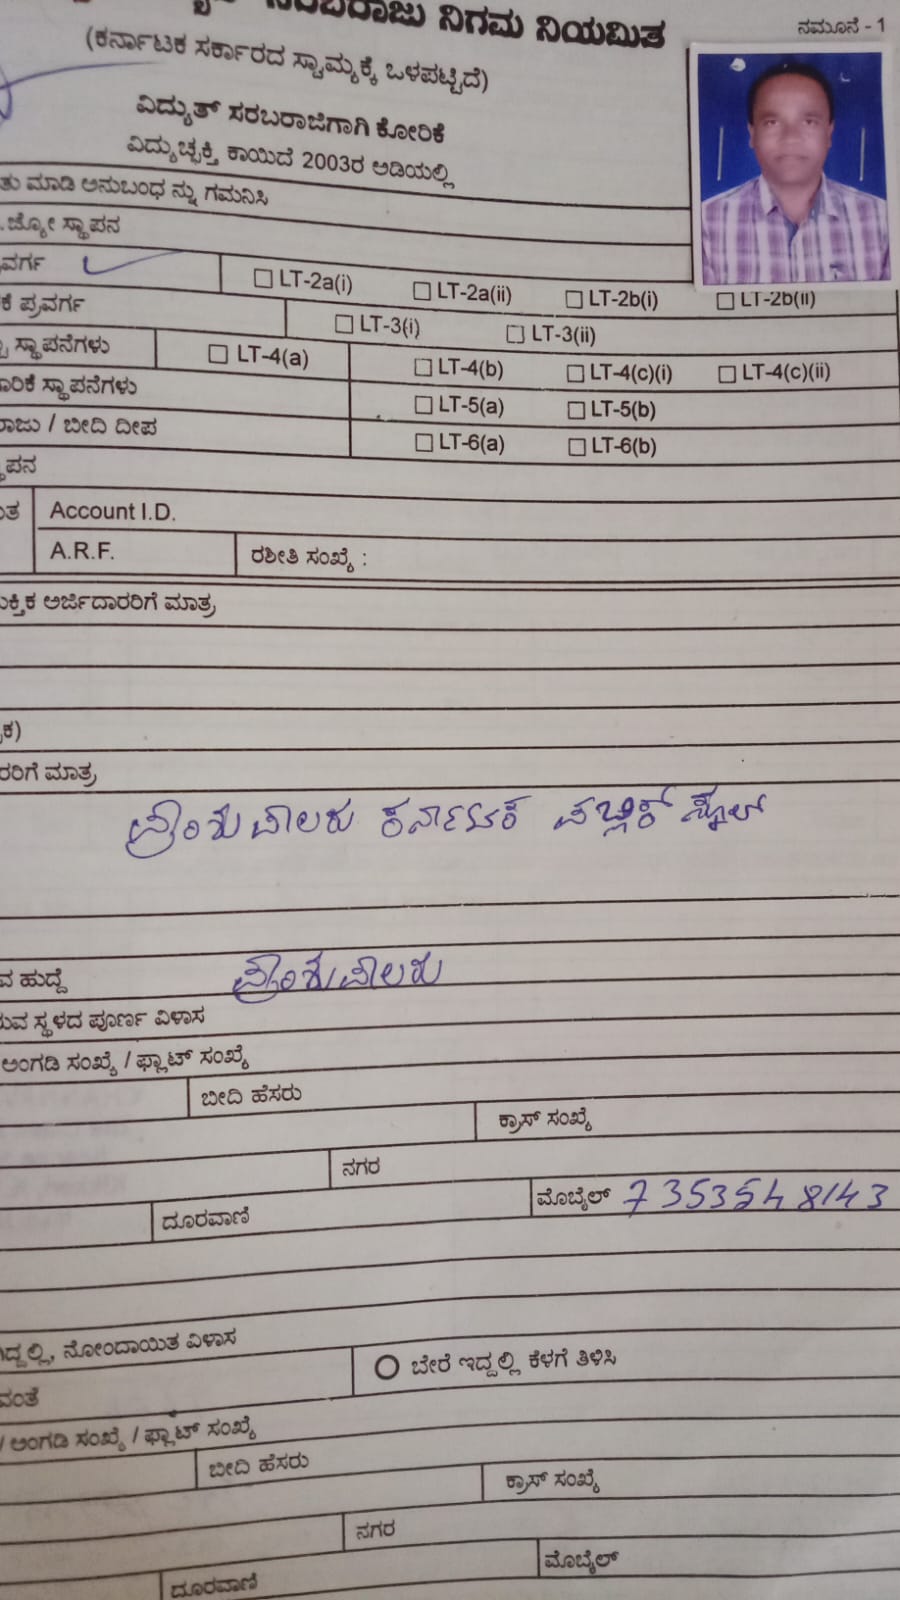 ನಿಗಮ ನಿಯಮಿತ
ನಮೂನೆ - 1
(ಕರ್ನಾಟಕ ಸರ್ಕಾರದ ಸ್ವಾಮ್ಯಕ್ಕೆ ಒಳಪಟ್ಟಿದೆ)
ವಿದ್ಯುತ್ ಸರಬರಾಜಿಗಾಗಿ ಕೋರಿಕೆ
ವಿದ್ಯುಚ್ಛಕ್ತಿ ಕಾಯಿದೆ 2003ರ ಅಡಿಯಲ್ಲಿ
ಮಾಡಿ ಅನುಬಂಧ ನ್ನು ಗಮನಿಸಿ
ಸ್ಥಾಪನ
LT-2a(i) LT-2a(ii) LT-2b(i) LT-2b(ii)
ಪ್ರವರ್ಗ LT-3(i) LT-3(ii)
ಸ್ಥಾಪನೆಗಳು LT-4(a) LT-4(b) LT-4(c)(i) LT-4(c)(ii)
ಸ್ಥಾಪನೆಗಳು LT-5(a) LT-5(b)
/ ಬೀದಿ ದೀಪ LT-6(a) LT-6(b)
Account I.D.
A.R.F. ರಶೀತಿ ಸಂಖ್ಯೆ :
ಅರ್ಜಿದಾರರಿಗೆ ಮಾತ್ರ
ಮಾತ್ರ
ಪ್ರಾಂಶುಪಾಲರು ಕರ್ನಾಟಕ ಪಬ್ಲಿಕ್ ಸ್ಕೂಲ್
ಹುದ್ದೆ ಪ್ರಾಂಶುಪಾಲರು
ಸ್ಥಳದ ಪೂರ್ಣ ವಿಳಾಸ
ಅಂಗಡಿ ಸಂಖ್ಯೆ / ಫ್ಲಾಟ್ ಸಂಖ್ಯೆ
ಬೀದಿ ಹೆಸರು
ಕ್ರಾಸ್ ಸಂಖ್ಯೆ
ನಗರ
ದೂರವಾಣಿ ಮೊಬೈಲ್ 7353548143
ನೋಂದಾಯಿತ ವಿಳಾಸ
ಬೇರೆ ಇದ್ದಲ್ಲಿ ಕೆಳಗೆ ತಿಳಿಸಿ
/ ಅಂಗಡಿ ಸಂಖ್ಯೆ / ಫ್ಲಾಟ್ ಸಂಖ್ಯೆ
ಬೀದಿ ಹೆಸರು
ಕ್ರಾಸ್ ಸಂಖ್ಯೆ
ನಗರ
ದೂರವಾಣಿ ಮೊಬೈಲ್